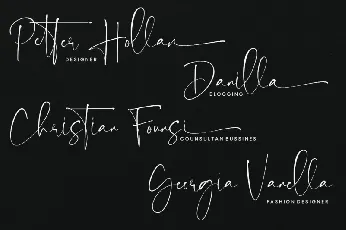 Petter Hollan
DESIGNER
Danilla
BLOGGING
Christian Founsi
COUNSULTAN BUSSINES
Georgia Vanella
FASHION DESIGNER